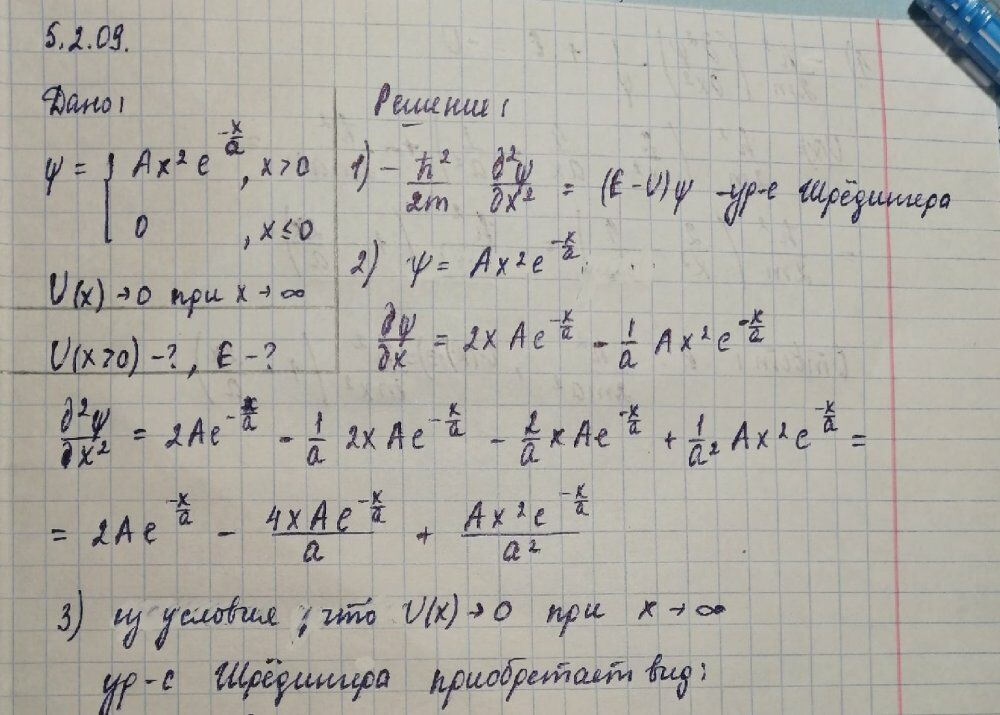 5.2.09.
Дано:
ψ = { Ax²e^(-x/a), x>0
0, x≤0
U(x)→0 при x→∞
U(x>0) -?, E -?
Решение:
1) - ħ²/2m ∂²ψ/∂x² = (E-U)ψ - ур-е Шрёдингера
2) ψ = Ax²e^(-x/a);
∂ψ/∂x = 2xAe^(-x/a) - 1/a Ax²e^(-x/a)
∂²ψ/∂x² = 2Ae^(-x/a) - 1/a 2xAe^(-x/a) - 2/a xAe^(-x/a) + 1/a² Ax²e^(-x/a) =
= 2Ae^(-x/a) - 4xAe^(-x/a)/a + Ax²e^(-x/a)/a²
3) из условия, что U(x)→0 при x→∞
ур-е Шрёдингера приобретает вид: